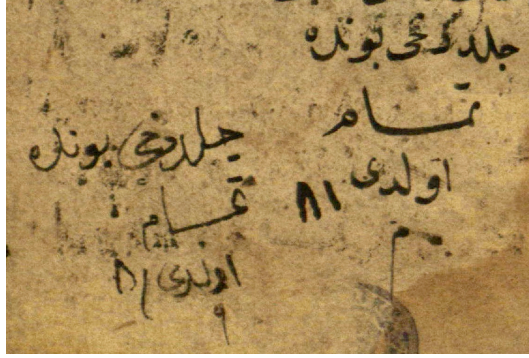 جلد دخی بونده
تمام
اولدی ٨١
م
جلد دخی بونده
تمام
اولدی ٨١